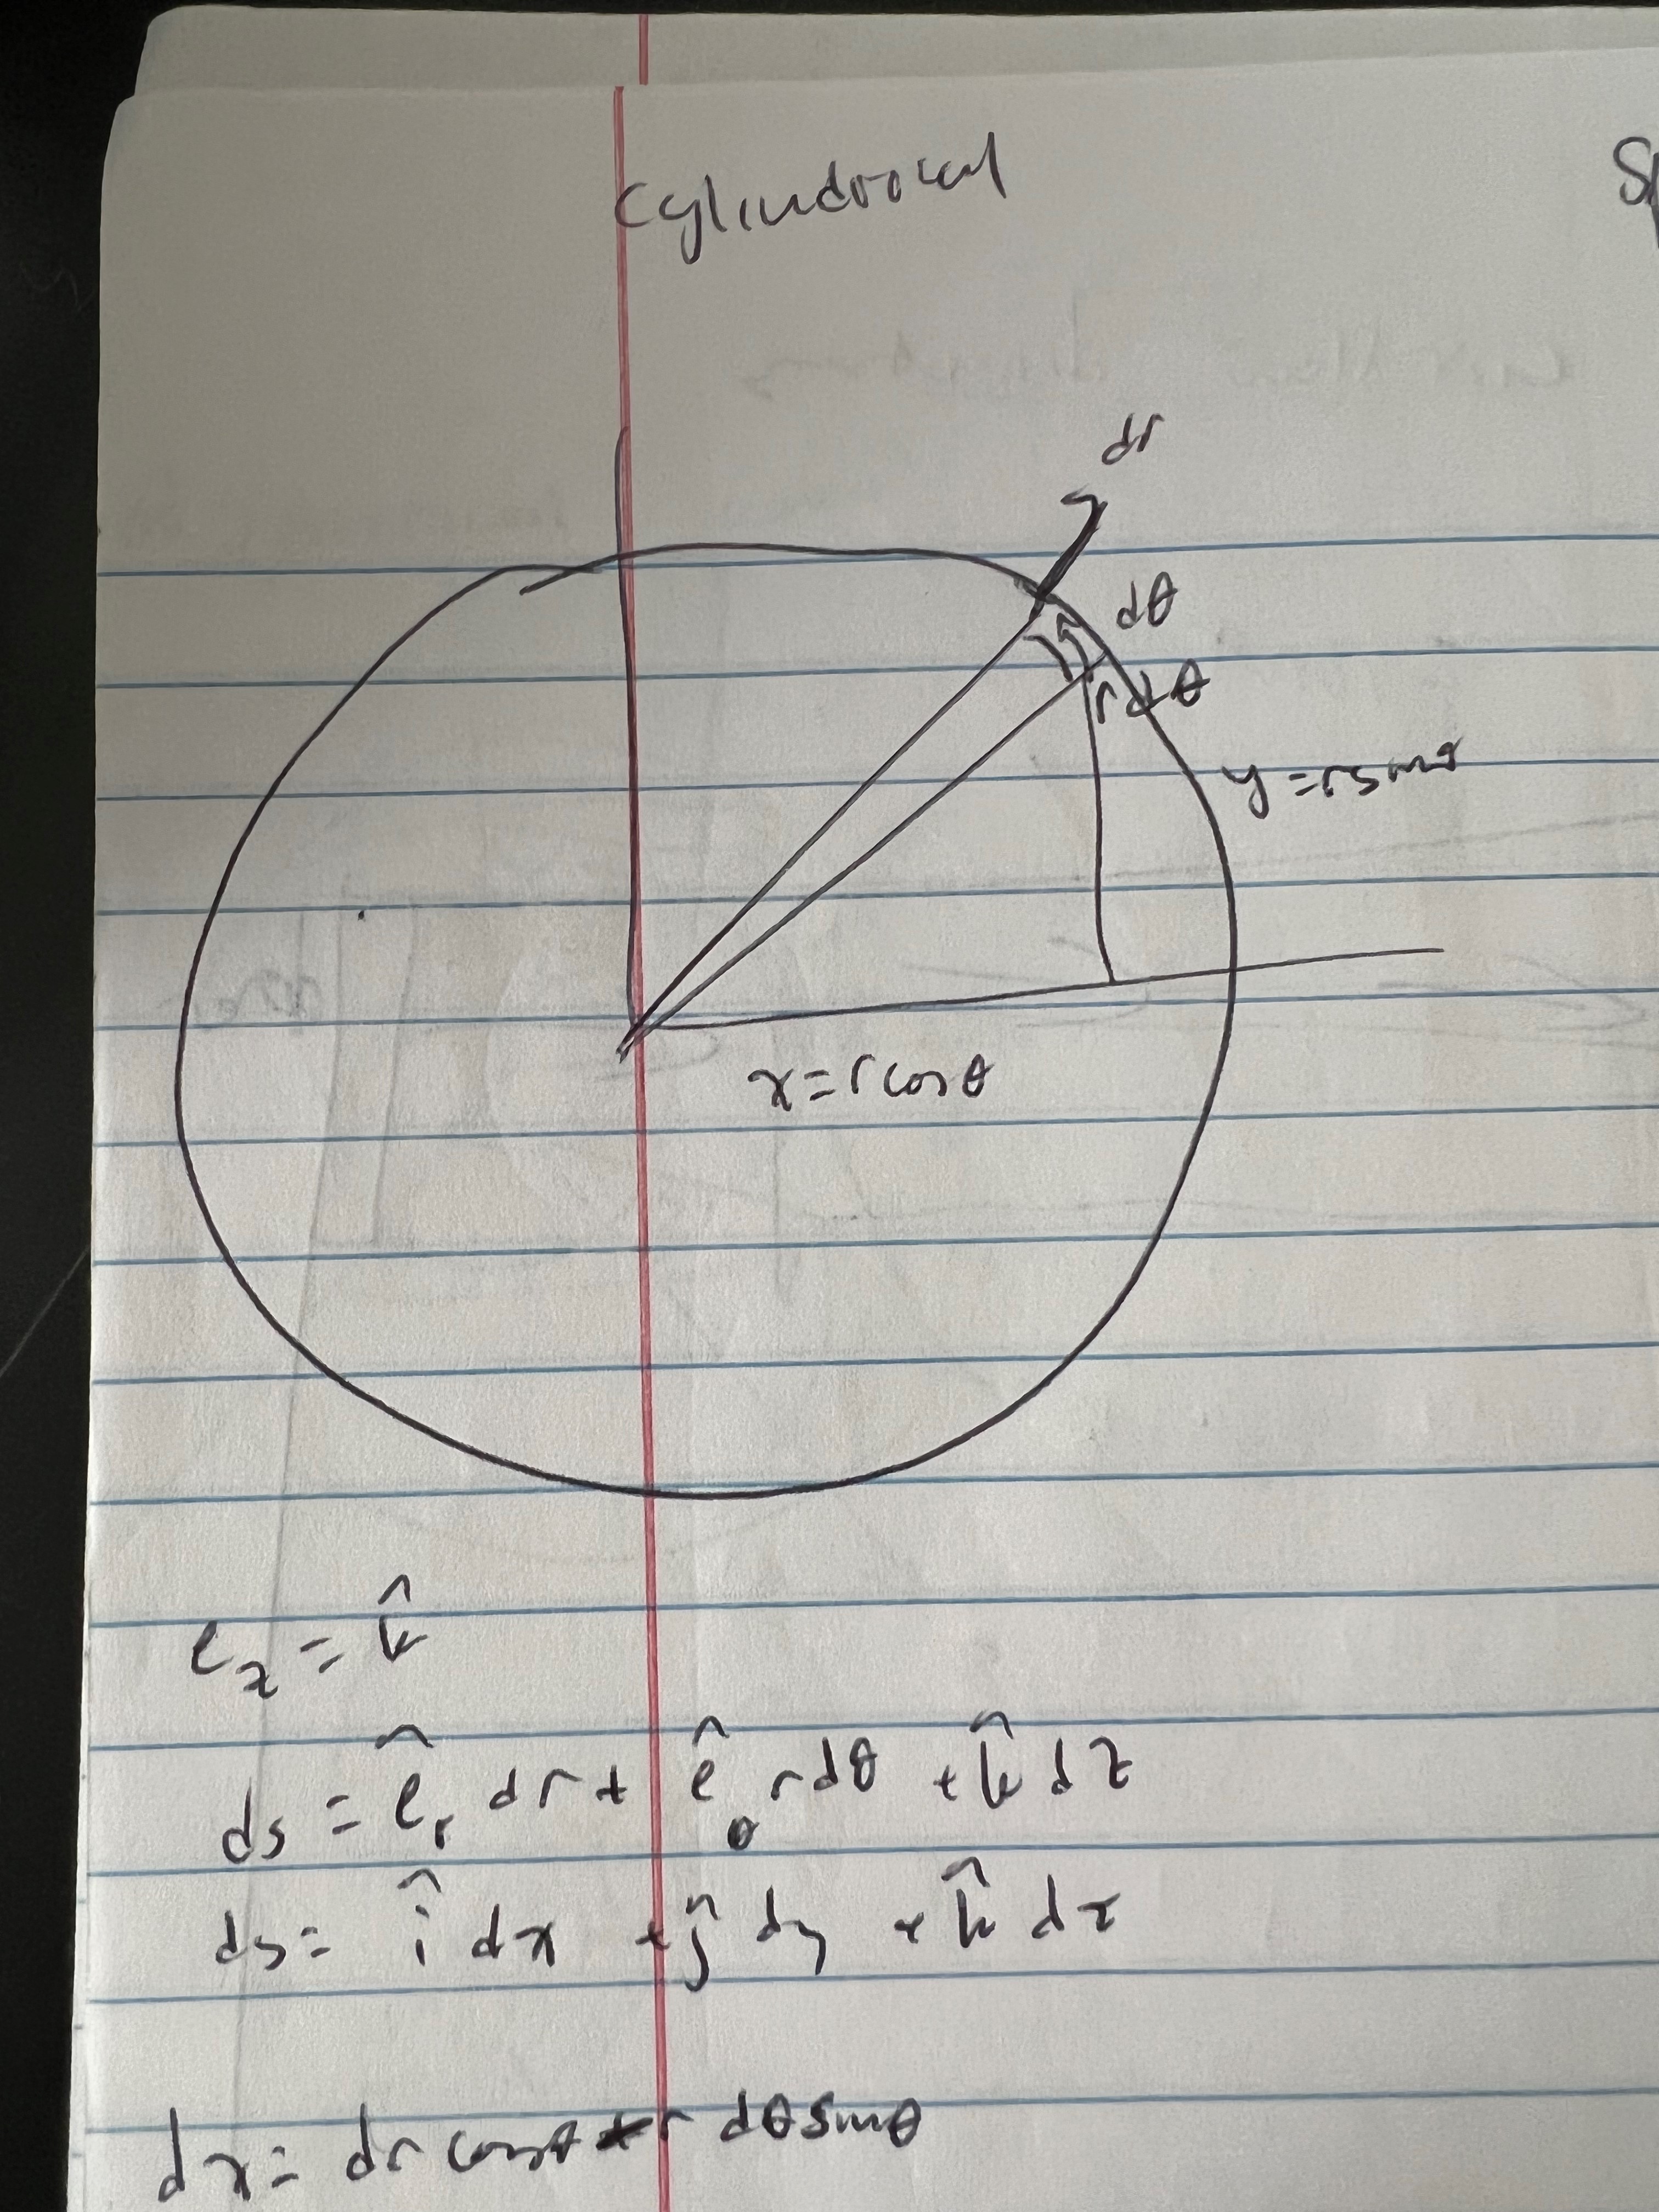 Cylindrical
Sp
dr
dθ
r dθ
y = r sinθ
x = r cosθ
e_z = k̂
ds = ê_r dr + ê_θ r dθ + k̂ dz
ds = î dx + ĵ dy + k̂ dz
dx = dr cosθ - r dθ sinθ